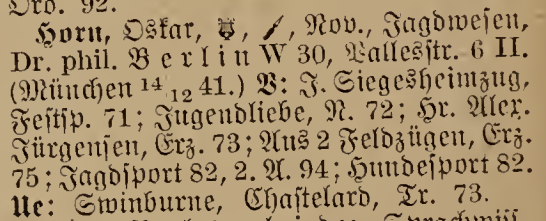 Oro. 92.
Horn, Oskar, Nov., Jagdwesen,
Dr. phil. Berlin W 30, Pallesstr. 6 II.
(München 14 12 41.) V: J. Siegesheimzug,
Festsp. 71; Jugendliebe, N. 72; Hr. Alex.
Jürgensen, Erz. 73; Aus 2 Feldzügen, Erz.
75; Jagdsport 82, 2. A. 94; Hundesport 82.
Ue: Swinburne, Chastelard, Tr. 73.